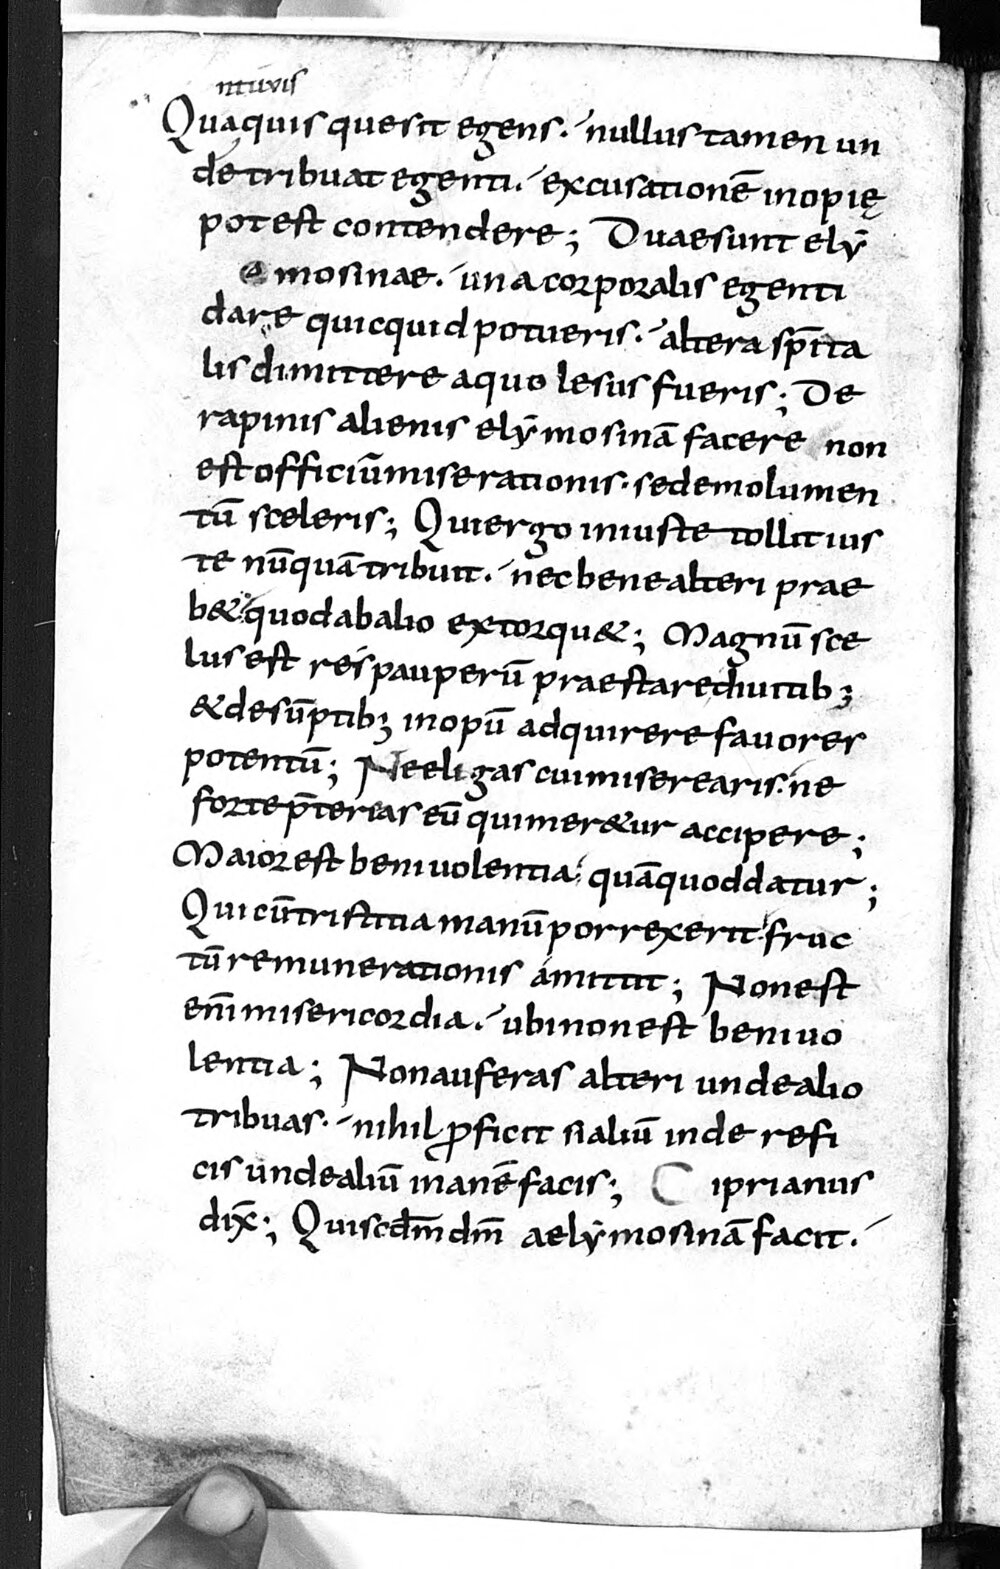 ntuvis
Quaquis quesit egens. nullus tamen un
de tribuat egenti. excusationē inopię
potest contendere; Duae sunt elẏ
amosinae. una corporalis egenti
dare quicquid potueris. altera sp̄ita
lis dimittere a quo lesus fueris; De
rapinis alienis elẏmosinā facere non
est officiū miserationis. sed emolumen
tū sceleris; Qui ergo iniuste tollit ius
te nūquā tribuit. nec bene alteri prae
b& quod ab alio extorqu&; Magnū sce
lus est res pauperū praestare diuitibꝫ
& de sūptibꝫ inopū adquirere fauorer
potentū; Ne eligas cui miserearis. ne
forte p̄tereas eū qui mer&ur accipere;
Maior est beniuolentia. quā quod datur;
Qui cū tristitia manū porrexerit. fruc
tū remunerationis ámittit; Non est
enī misericordia. ubi non est beniuo
lentia; Non auferas alteri unde alio
tribuas. nihil ꝓficit si aliū inde refi
cis unde aliū inanē facis; Ciprianus
dix̄; Quis scdm̄ dm̄ aelẏmosinā facit.